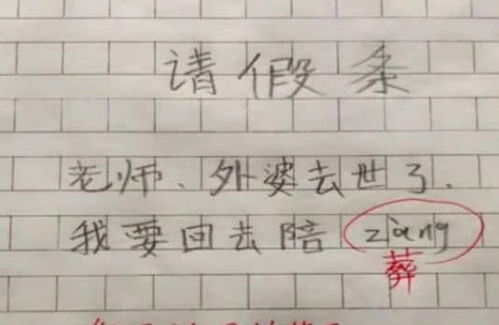 请假条
老师、外婆去世了.
我要回去陪 ziàng
葬